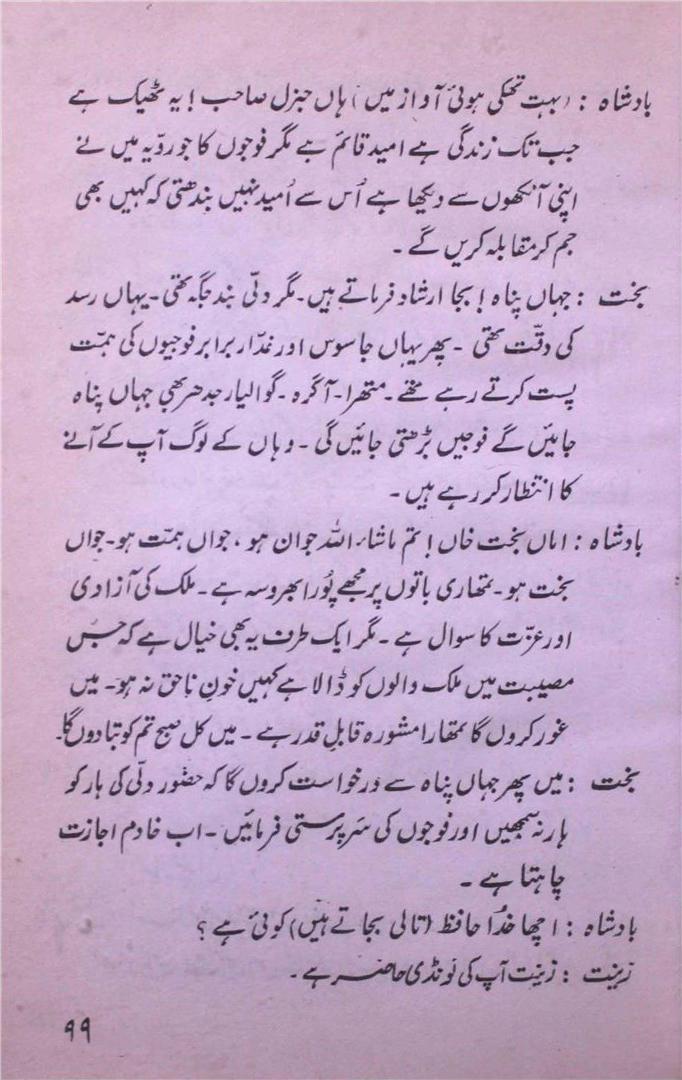 بادشاہ : (بہت تھکی ہوئی آواز میں) ہاں جنرل صاحب! یہ ٹھیک ہے
جب تک زندگی ہے امید قائم ہے مگر فوجوں کا جو رویّہ میں نے
اپنی آنکھوں سے دیکھا ہے اُس سے اُمید نہیں بندھتی کہ کہیں بھی
جم کر مقابلہ کریں گے ۔
بخت : جہاں پناہ! بجا ارشاد فرماتے ہیں۔ مگر دلّی بند جگہ تھی۔ یہاں رسد
کی دقّت تھی ۔ پھر یہاں جاسوس اور غدّار برابر فوجیوں کی ہمّت
پست کرتے رہے تھے ۔ متھرا۔ آگرہ ۔ گوالیار جدھر بھی جہاں پناہ
جائیں گے فوجیں بڑھتی جائیں گی ۔ وہاں کے لوگ آپ کے آنے
کا انتظار کر رہے ہیں ۔
بادشاہ : اماں بخت خاں! تم ماشاء اللہ جوان ہو ، جواں ہمّت ہو۔ جواں
بخت ہو۔ تمھاری باتوں پر مجھے پُورا بھروسہ ہے ۔ ملک کی آزادی
اور عزّت کا سوال ہے ۔ مگر ایک طرف یہ بھی خیال ہے کہ جس
مصیبت میں ملک والوں کو ڈالا ہے کہیں خونِ ناحق نہ ہو۔ میں
غور کروں گا تمھارا مشورہ قابلِ قدر ہے ۔ میں کل صبح تم کو بتا دوں گا۔
بخت : میں پھر جہاں پناہ سے درخواست کروں گا کہ حضور دلّی کی ہار کو
ہار نہ سمجھیں اور فوجوں کی سرپرستی فرمائیں ۔ اب خادم اجازت
چاہتا ہے ۔
بادشاہ : اچھا خدُا حافظ (تالی بجاتے ہیں) کوئی ہے ؟
زینت : زینت آپ کی لونڈی حاضر ہے ۔
۹۹